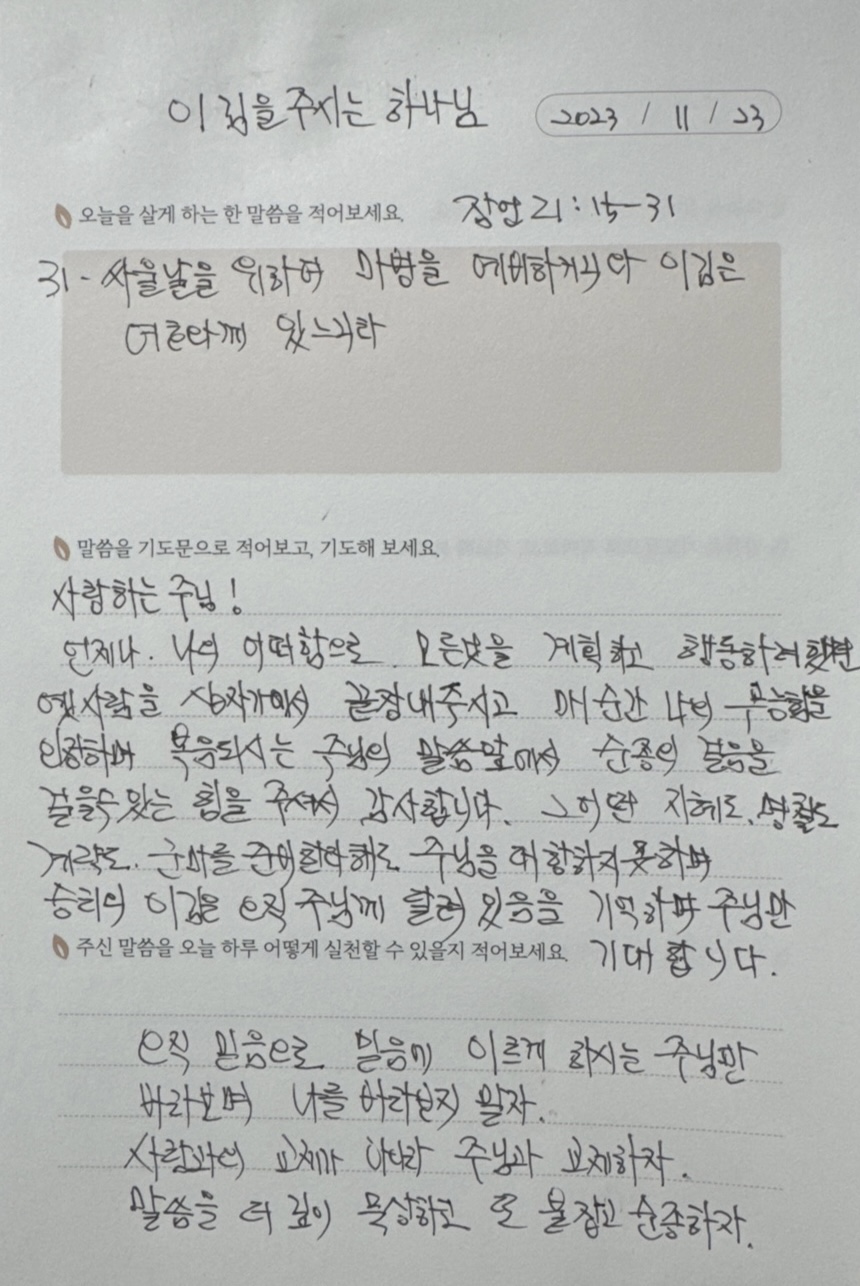 이김을 주시는 하나님 2023 / 11 / 23
오늘을 살게 하는 한 말씀을 적어보세요. 잠언 21:15-31
31 - 싸울날을 위하여 마병을 예비하거니와 이김은
여호와께 있느니라
말씀을 기도문으로 적어보고, 기도해 보세요.
사랑하는 주님!
언제나. 나의 어떠함으로. 모든것을 계획하고 행동하려했던
옛사람을 십자가에서 끝장내주시고 매순간 나의 무능함을
인정하며 복음되시는 주님의 말씀앞에서 순종의 걸음을
걸을수있는 힘을 주셔서 감사합니다. 그어떤 지혜도. 명철도
계략도. 군마를 준비한다해도 주님을 대항하지못하며
승리의 이김은 오직 주님께 달려 있음을 기억하며 주님만
기대합니다.
주신 말씀을 오늘 하루 어떻게 실천할 수 있을지 적어보세요.
오직 믿음으로 믿음에 이르게 하시는 주님만
바라보며 나를 바라보지 말자.
사람과의 교제가 아니라 주님과 교제하자.
말씀을 더 깊이 묵상하고 또 붙잡고 순종하자.